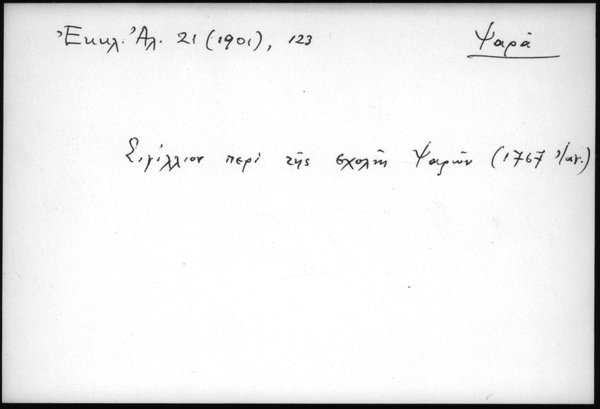 Ἐκκλ. Ἀλ. 21 (1901), 123
Ψαρᾶ
Σιγίλλιον περὶ τῆς σχολῆς Ψαρῶν (1767